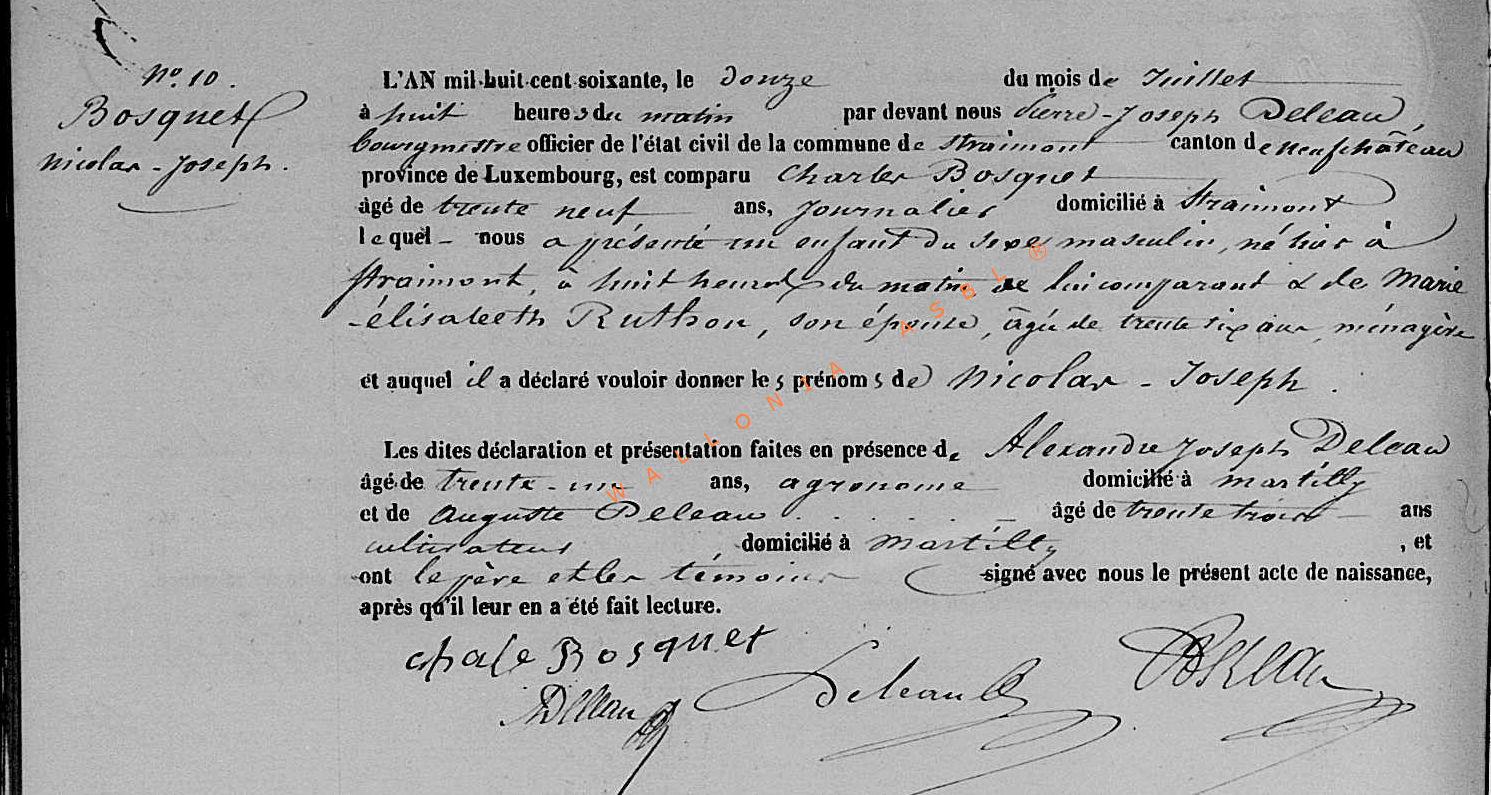 N° 10.
Bosquet
Nicolas-Joseph.
L'AN mil-huit-cent-soixante, le douze du mois de Juillet
à huit heures du matin par devant nous Pierre-Joseph Deleau,
bourgmestre officier de l'état civil de la commune de Straimont canton de neufchâteau
province de Luxembourg, est comparu Charles Bosquet
âgé de trente neuf ans, Journalier domicilié à Straimont
lequel nous a présenté un enfant du sexe masculin, né hier à
Straimont, à huit heures du matin de lui comparant & de Marie
-élisabeth Ruthon, son épouse, âgée de trente six ans, ménagère
et auquel il a déclaré vouloir donner les prénoms de Nicolas - Joseph.
Les dites déclaration et présentation faites en présence de Alexandre Joseph Deleau
âgé de trente-un ans, agronome domicilié à martilly
et de Auguste Deleau . . . . . âgé de trente trois ans
cultivateur, domicilié à Martilly, et
ont le père et les témoins signé avec nous le présent acte de naissance,
après qu'il leur en a été fait lecture.
chale Bosquet
Deleau Deleau
ADeleau
WALLONIA ASBL ®